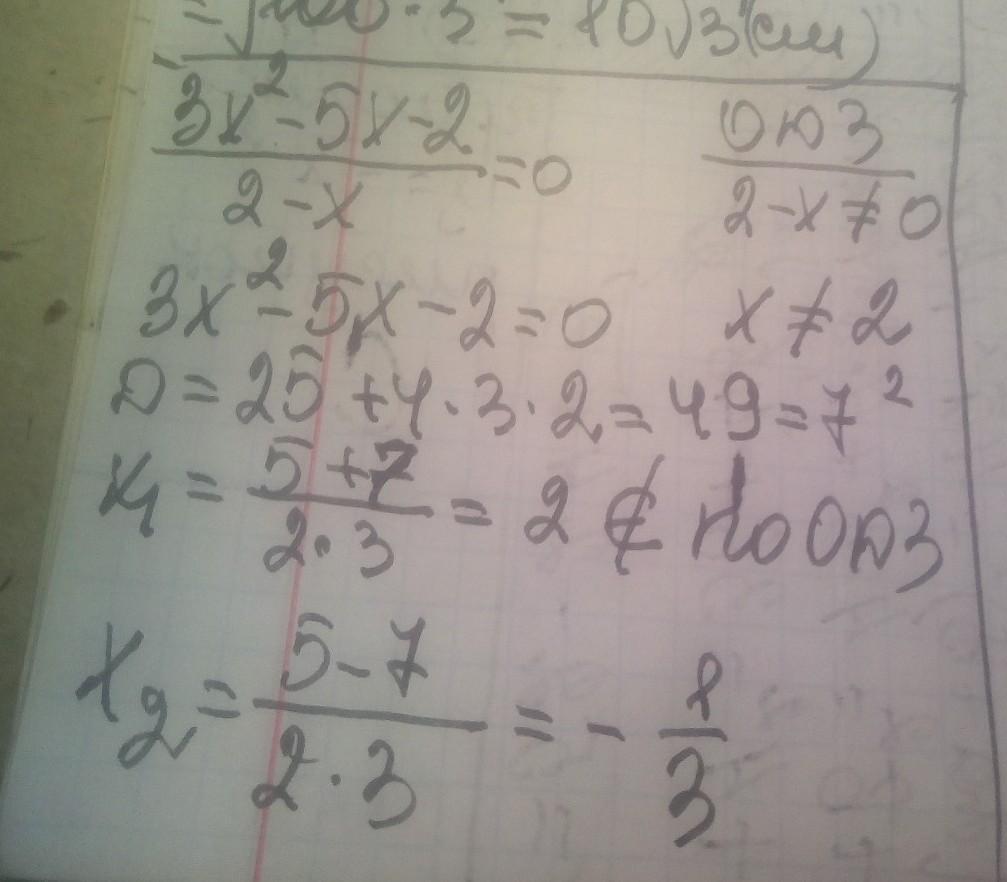 = √100 · 3 = 10√3 (см)
3x² - 5x - 2 / 2 - x = 0
ОДЗ
2 - x ≠ 0
3x² - 5x - 2 = 0
x ≠ 2
D = 25 + 4 · 3 · 2 = 49 = 7²
x₁ = 5 + 7 / 2 · 3 = 2 ∉ по ОДЗ
x₂ = 5 - 7 / 2 · 3 = - 1/3